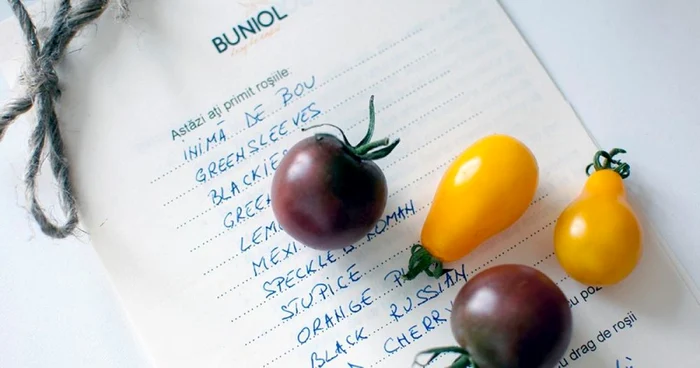 BUNIOL
drag de roșii
Astăzi ați primit roșiile:
INIMĂ DE BOU
GREENSLEEVES
BLACKIE
GREE
LEM
MEXI
SPECKLED ROMAN
STUPICE
ORANGE
BLACK RUSSIAN
CHERRY
cu poz
cu drag de roșii